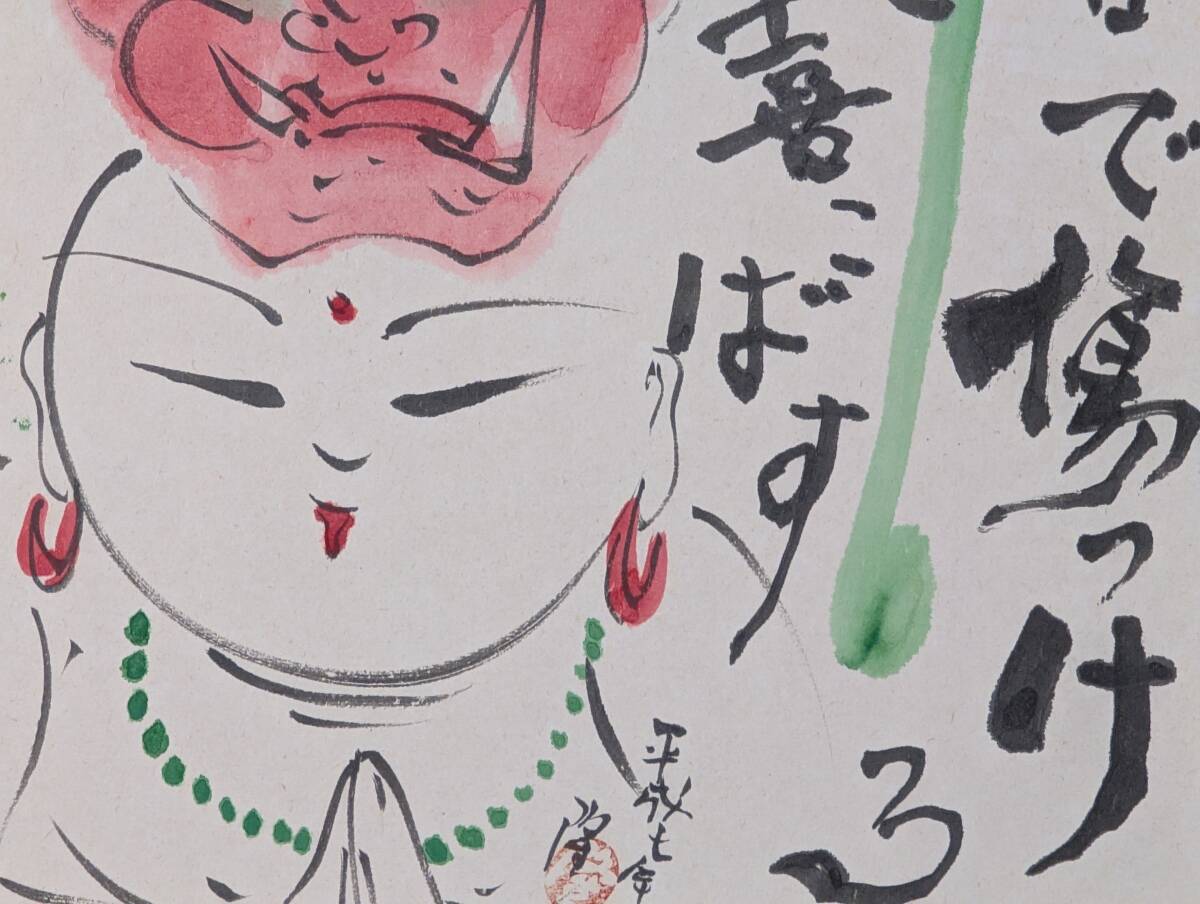 で傷つけ
る
喜こばす
平成七年